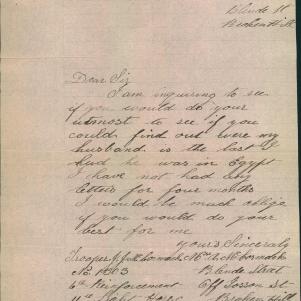 Blende St
Broken Hill
Dear Sir
I am inquiring to see
if you would do your
utmost to see if you
could find out were my
husband is the last I
had he was in Egypt
I have not had any
letters for four months
I would be much oblige
if you would do your
best for me
Yours Sincerely
Trooper
No. 1003 Blende Street
6th Reinforcement Off Jossen St
11th Light Horse Broken Hill